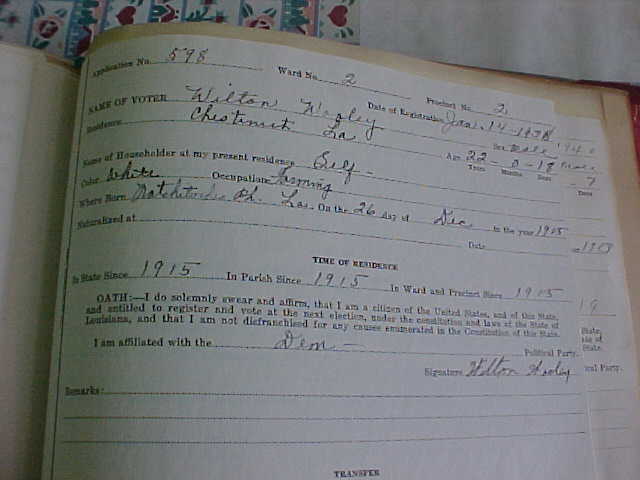 Application No. 598 Ward No. 2 Precinct No. 2
Date of Registration Jan. 14-1938 1940
NAME OF VOTER Wilton Wagley Sex Male
Residence Chestnut La Age 22 - 0 - 18
Years Months Days
Name of Householder at my present residence Self - 7
Color White Occupation Farming Days
Where Born Natchitoches Ph. La. On the 26 day of Dec in the year 1915
Naturalized at Date
TIME OF RESIDENCE
In State Since 1915 In Parish Since 1915 In Ward and Precinct Since 1915
OATH:—I do solemnly swear and affirm, that I am a citizen of the United States, and of this State,
and entitled to register and vote at the next election, under the constitution and laws of the State of
Louisiana, and that I am not disfranchised for any causes enumerated in the Constitution of this State.
I am affiliated with the Dem - Political Party.
Signature Wilton Wagley
Remarks:
TRANSFER
State,
State.
ical Party.